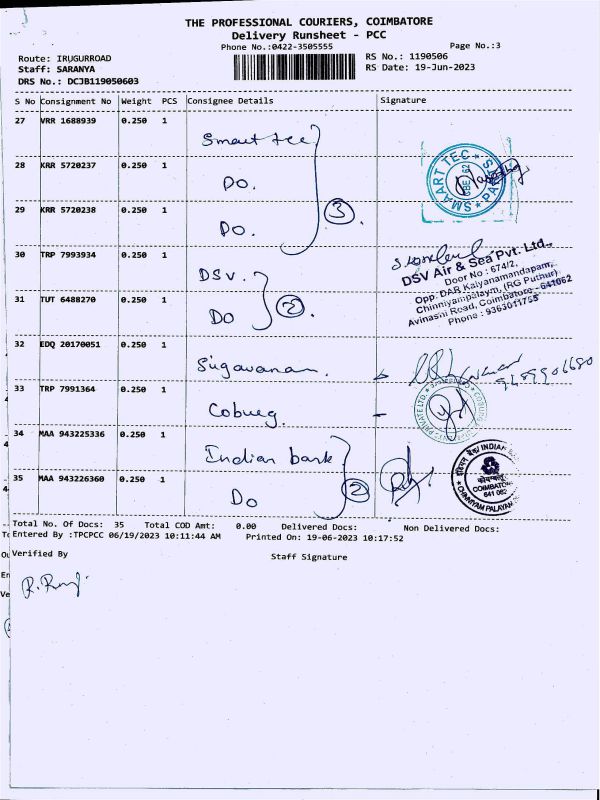 THE PROFESSIONAL COURIERS, COIMBATORE
Delivery Runsheet - PCC
Phone No.:0422-3505555
Page No.:3
Route: IRUGURROAD
RS No.: 1190506
Staff: SARANYA
RS Date: 19-Jun-2023
DRS No.: DCJB119050603
S No Consignment No Weight PCS Consignee Details Signature
27 VRR 1688939 0.250 1 Smaart tec
28 KRR 5720237 0.250 1 Do.
29 KRR 5720238 0.250 1 Do.
3
SMAART TEC
30 TRP 7993934 0.250 1 DSV.
31 TUT 6488270 0.250 1 Do
2
DSV Air & Sea Pvt. Ltd.,
Door No : 674/2,
Opp. DAR Kalyanamandapam,
Chinniyampalaym, (RG Puthur)
Avinasni Road, Coimbatore - 641062
Phone : 9363011755
32 EDQ 20170051 0.250 1 Sugavanan.
33 TRP 7991364 0.250 1 Coburg.
PRIVATE LTD.
34 MAA 943225336 0.250 1 Indian bank
35 MAA 943226360 0.250 1 Do
2
INDIAN
COIMBATORE
641 062
Total No. Of Docs: 35 Total COD Amt: 0.00 Delivered Docs: Non Delivered Docs:
Entered By :TPCPCC 06/19/2023 10:11:44 AM Printed On: 19-06-2023 10:17:52
Verified By
Staff Signature